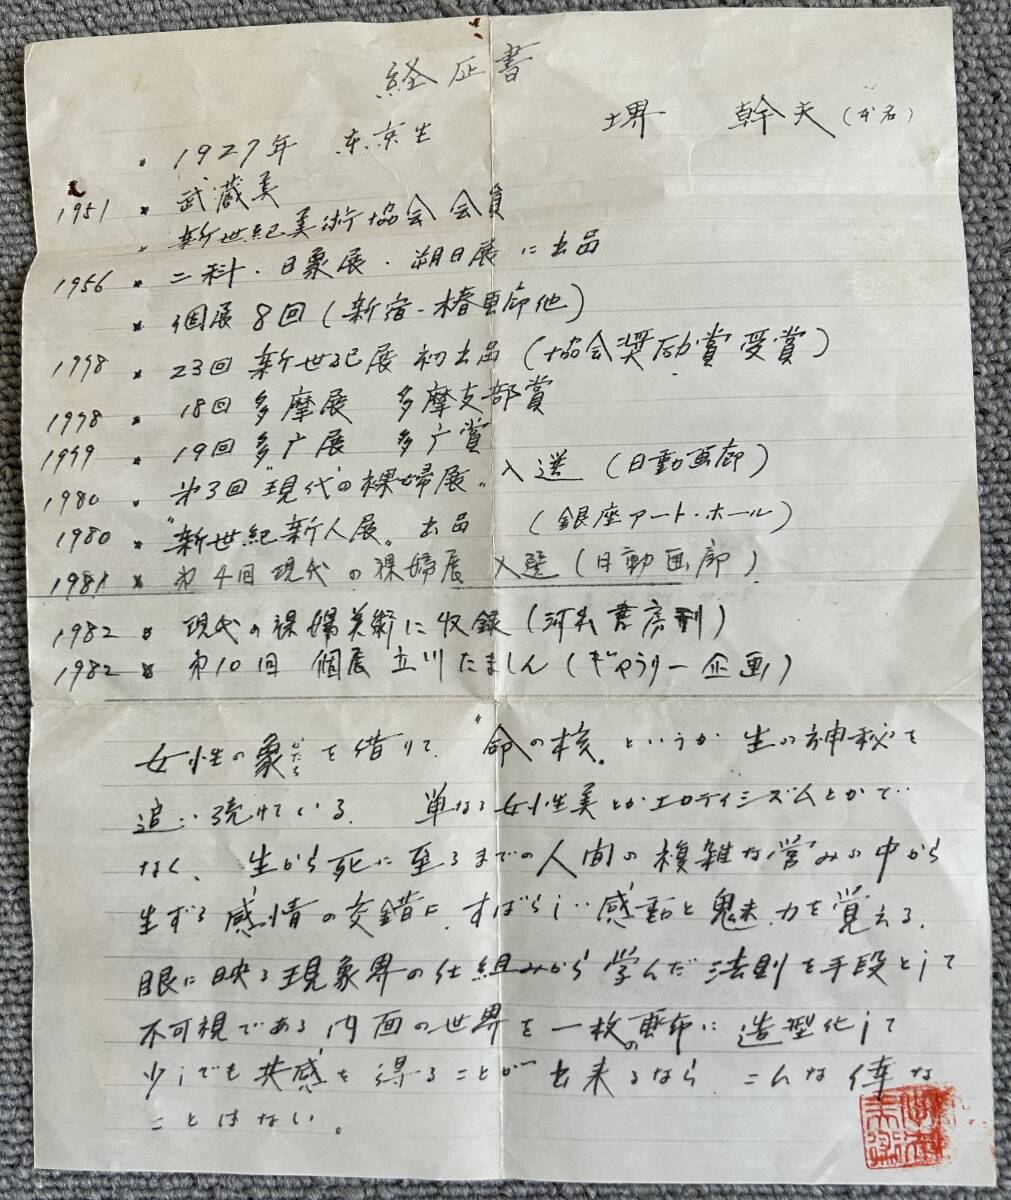 経歴書
堺 幹夫(本名)
・1927年 東京生
1951 • 武蔵美
・新世紀美術協会会員
1956 • 二科・日象展・朔日展に出品
• 個展8回(新宿-椿画廊他)
1978 • 23回新世紀展初出品(協会奨励賞受賞)
1978 • 18回多摩展 多摩支部賞
1979 • 19回多广展 多广賞
1980 • 第3回"現代の裸婦展"入選(日動画廊)
1980 • "新世紀新人展"出品 (銀座アート・ホール)
1981 • 第4回現代の裸婦展入選(日動画廊)
1982 • 現代の裸婦美術に収録(河出書房刊)
1982 • 第10回 個展 立川たましん(ギャラリー企画)
女性の象かたちを借りて"命の核"というか生の神秘を
追い続けている. 単なる女性美とかエロティシズムとかで
なく、生から死に至るまでの人間の複雑な営みの中から
生ずる感情の交錯に、すばらしい感動と魅力を覚える.
眼に映る現象界の仕組みから学んだ法則を手段として
不可視である内面の世界を一枚の画布に造型化して
少しでも共感を得ることが出来るなら こんな倖な
ことはない。